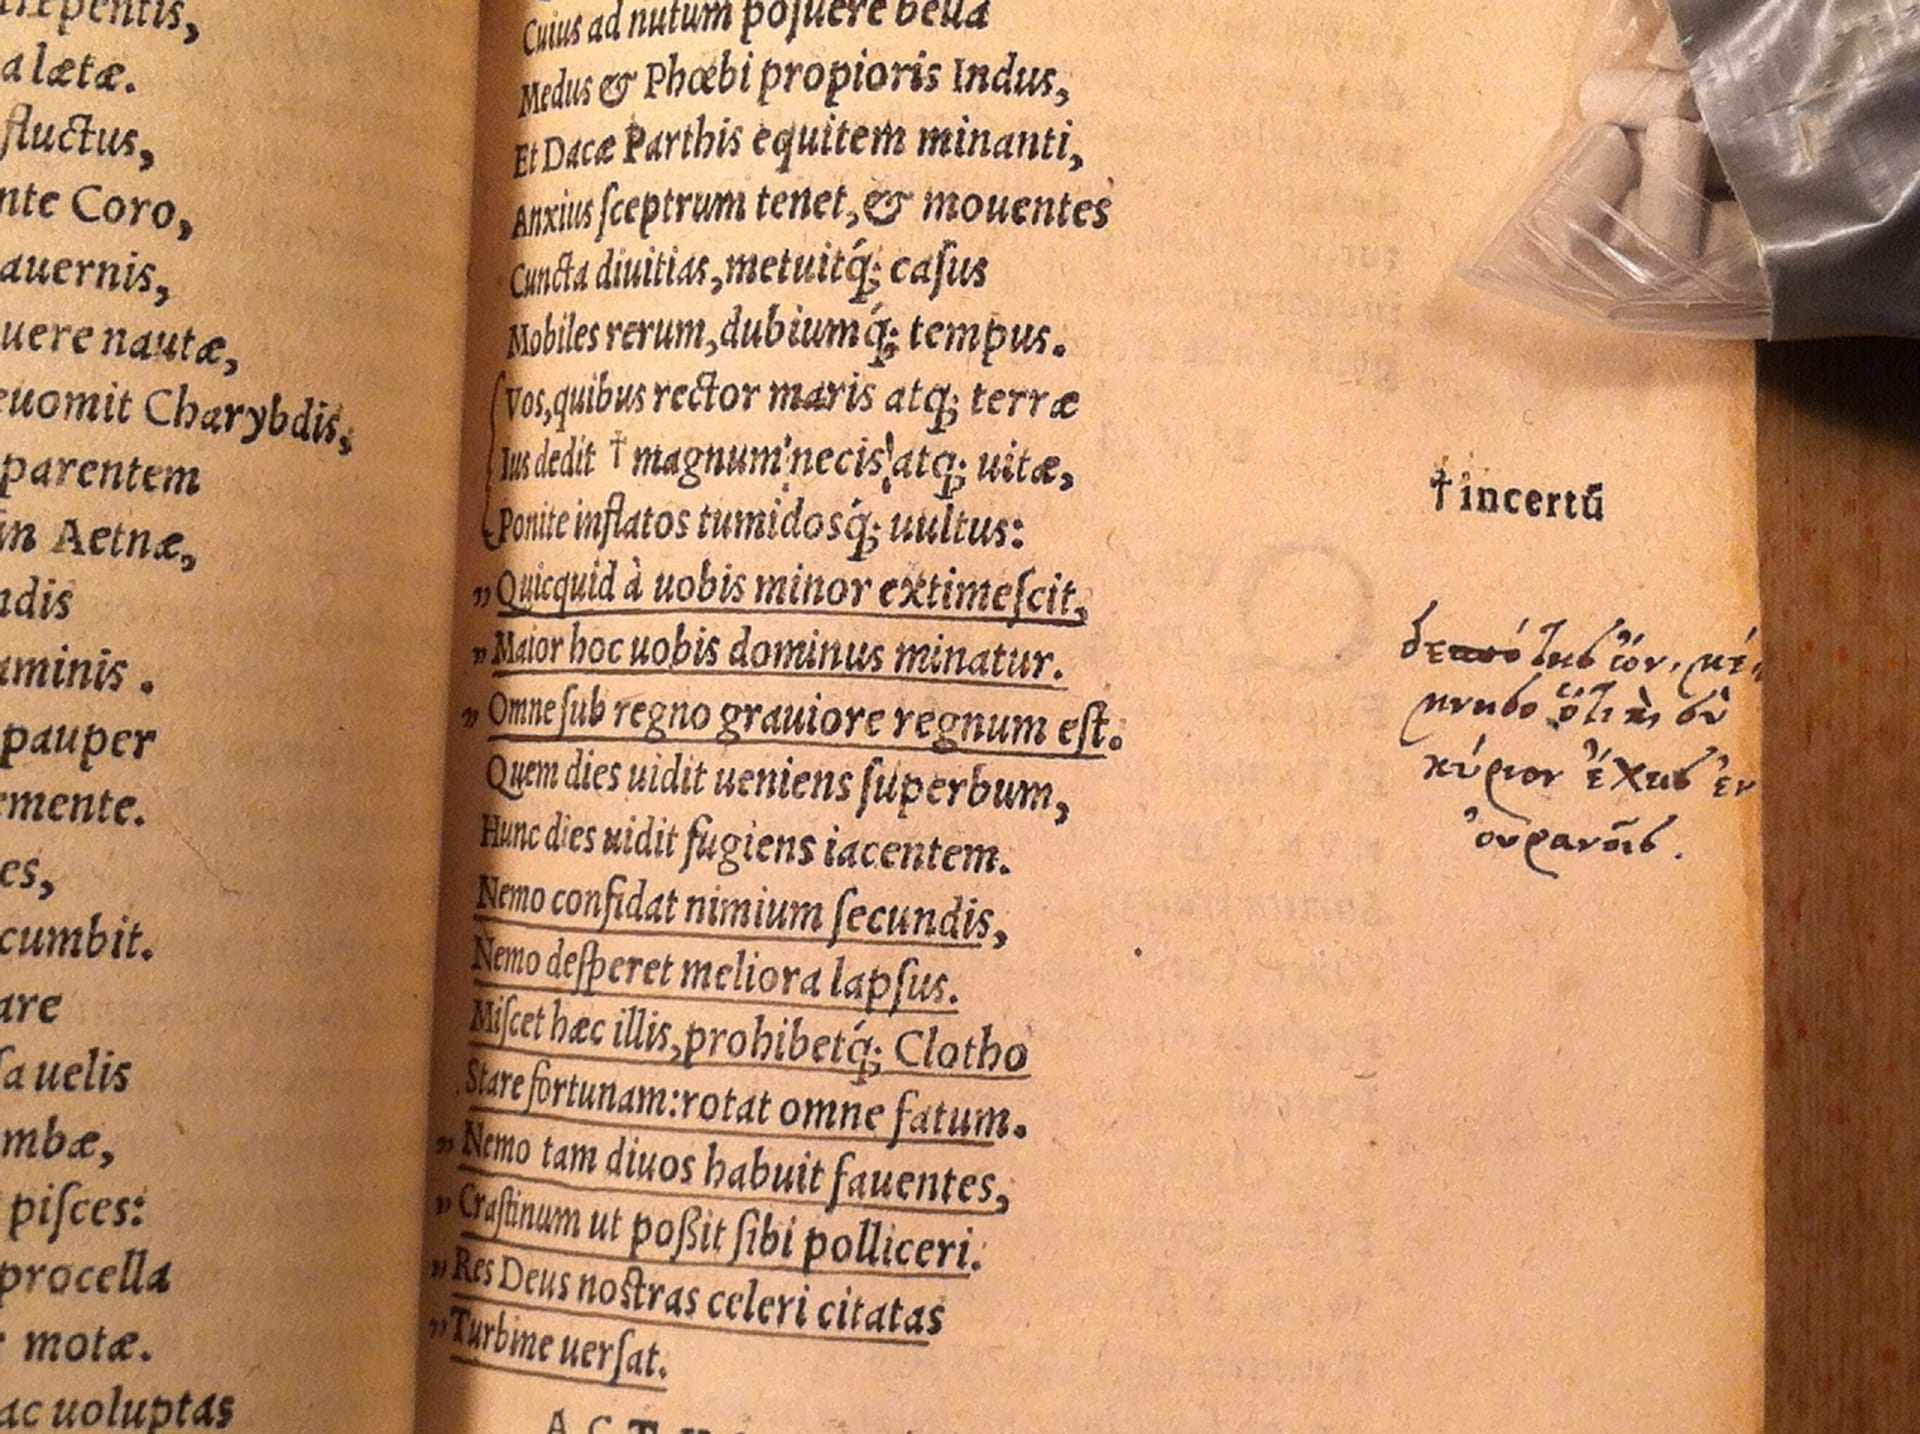 repentis,
a lætæ.
fluctus,
nte Coro,
auernis,
uere nautæ,
euomit Charybdis,
parentem
in Aetnæ,
ndis
minis.
pauper
emente.
es,
cumbit.
are
ſa uelis
mbæ,
piſces:
procella
motæ.
ac uoluptas
Cuius ad nutum poſuere bella
Medus & Phœbi propioris Indus,
Et Dacæ Parthis equitem minanti,
Anxius ſceptrum tenet, & mouentes
Cuncta diuitias, metuitq́; caſus
Mobiles rerum, dubiumq́; tempus.
Vos, quibus rector maris atq; terræ
Ius dedit † magnum necis atq; uitæ,
Ponite inflatos tumidosq́; uultus:
„ Quicquid à uobis minor extimeſcit,
„ Maior hoc uobis dominus minatur.
„ Omne ſub regno grauiore regnum eſt.
Quem dies uidit ueniens ſuperbum,
Hunc dies uidit fugiens iacentem.
Nemo confidat nimium ſecundis,
Nemo deſperet meliora lapſus.
Miſcet hæc illis, prohibetq́; Clotho
Stare fortunam: rotat omne fatum.
„ Nemo tam diuos habuit fauentes,
„ Craſtinum ut poßit ſibi polliceri.
„ Res Deus noſtras celeri citatas
„ Turbine uerſat.
† incertū
δεσπότης ὤν,
ὅτι καὶ σὺ
κύριον ἔχεις ἐν
οὐρανοῖς.